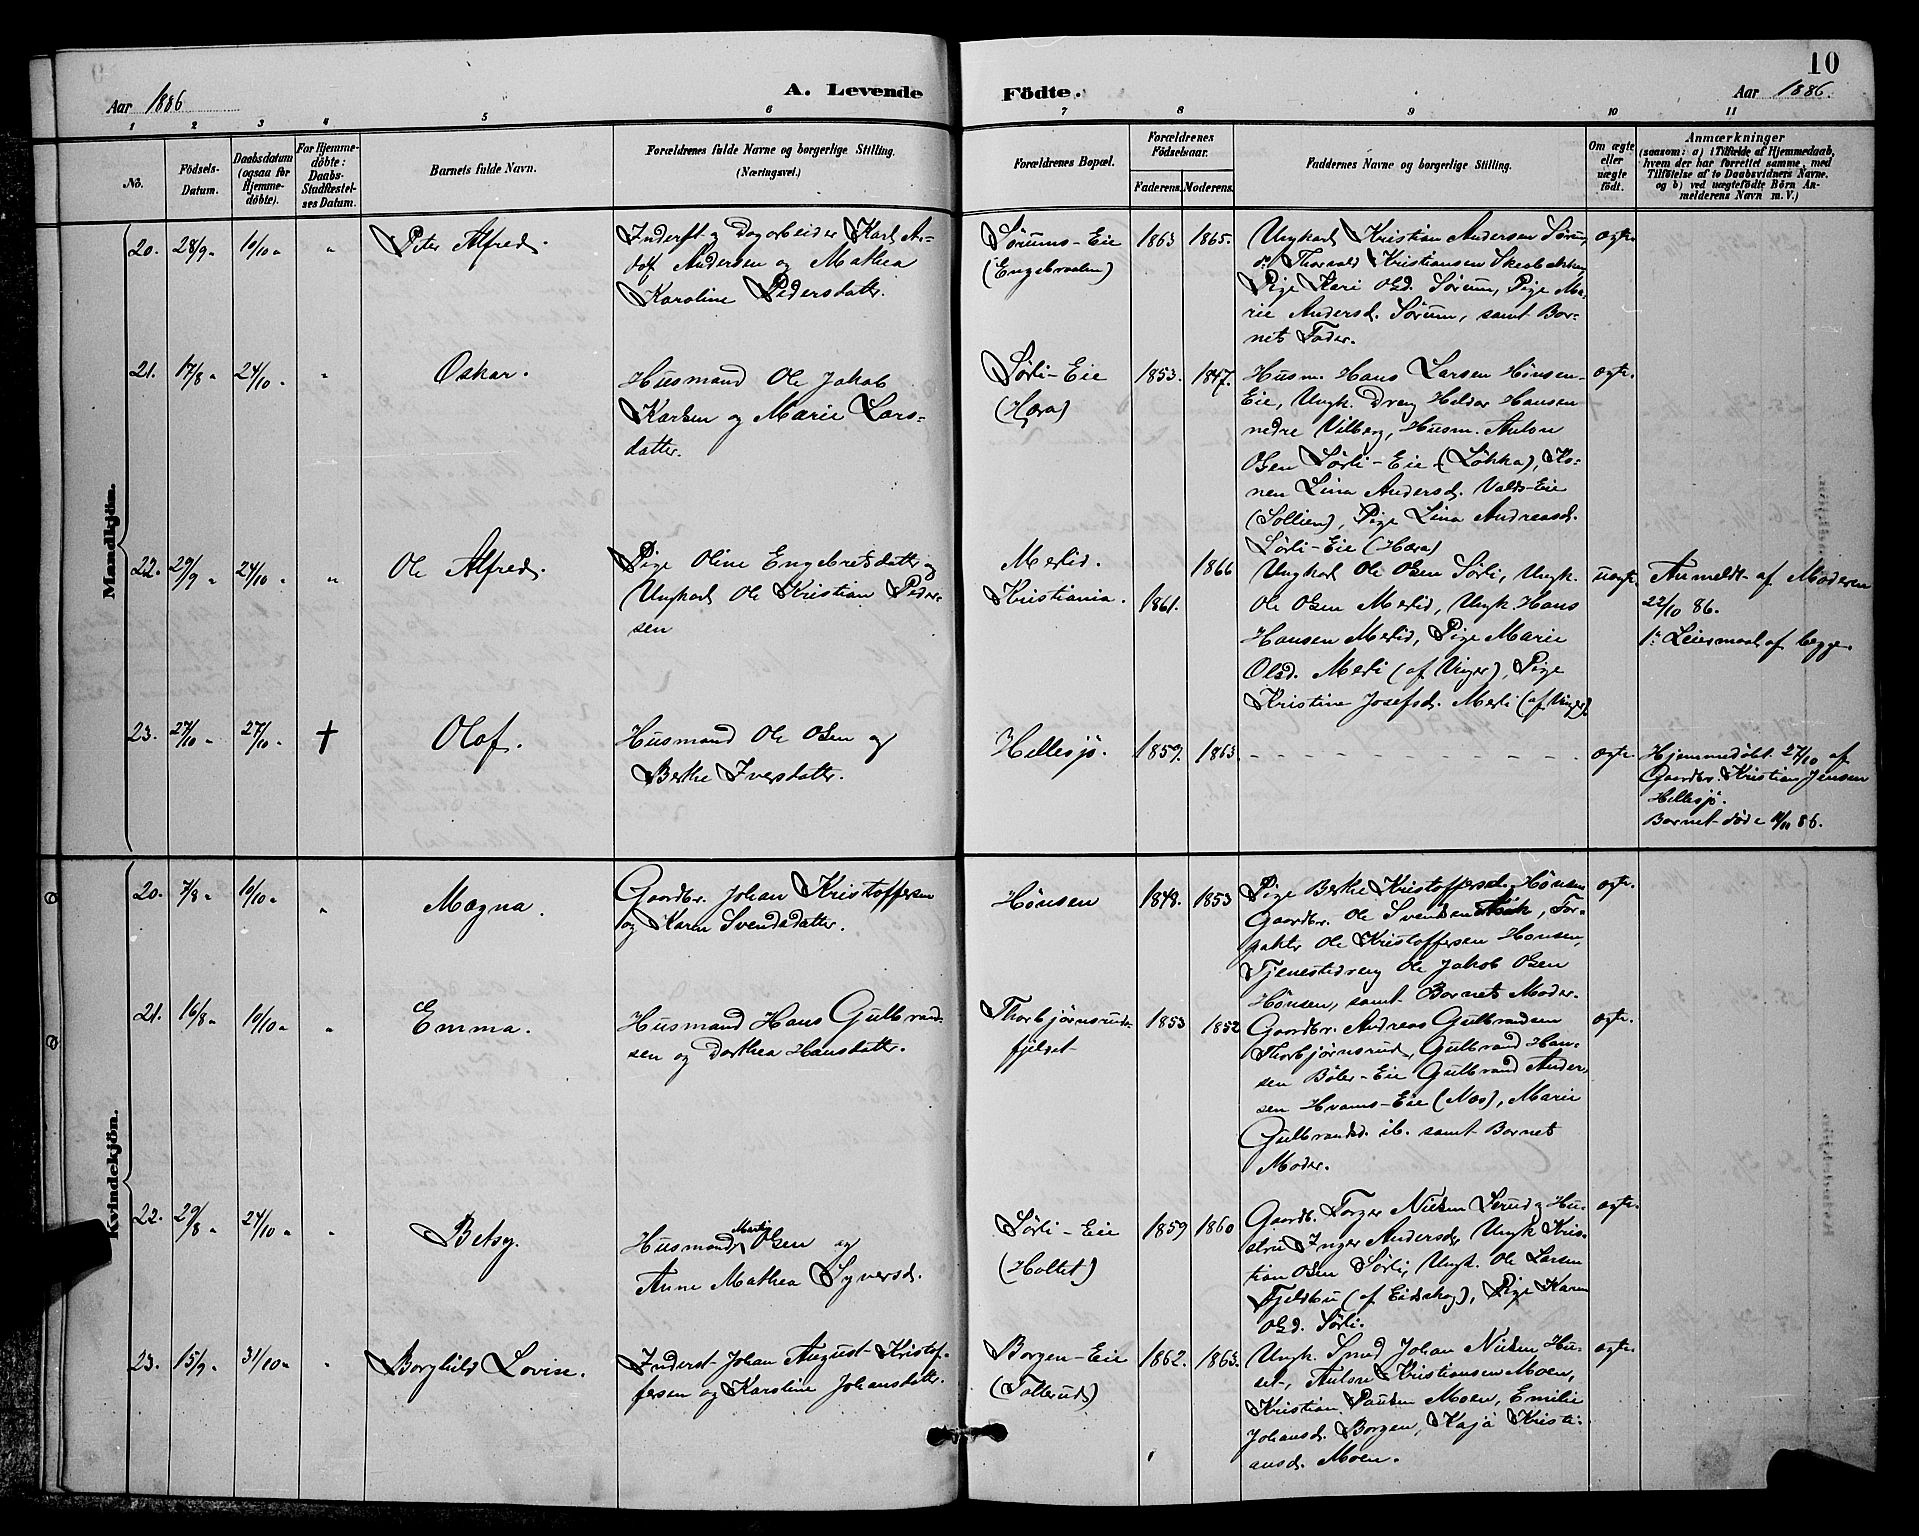 10
Aar 1886
A. Levende
Födte.
Aar 1886.
1 2 3 4 5 6 7 8 9 10 11
No.
Födsels-
Datum.
Daabsdatum
(ogsaa for
Hjemme-
döbte).
For Hjemme-
döbte:
Daabs-
Stadfæstel-
ses Datum.
Barnets fulde Navn.
Forældrenes fulde Navne og borgerlige Stilling.
(Næringsvei.)
Forældrenes Bopæl.
Forældrenes
Födselsaar.
Faderens. Moderens.
Faddernes Navne og borgerlige Stilling.
Om ægte
eller
uægte
födt.
Anmærkninger
(saasom: a) i Tilfælde af Hjemmedaab,
hvem der har forrettet samme, med
Tilföielse af to Daabsvidners Navne,
og b) ved uægtefödte Börn An-
melderens Navn m. V.)
Mandkjön.
20. 28/9 " 10/10 " " Peter Alfred.
Inderst og Dagarbeider Karl
Andersen og Mathea
Karoline Pedersdatter.
Sørums-Eie
(Engebraaten)
1863 1865.
Ungkarl Kristian Andersen Sørum,
do Thorvald Kristiansen
Pige Kari Olsd. Sørum, Pige Ma-
rie Andersd. Sørum, samt Bar-
nets Fader.
ægte.
21. 17/8 " 24/10 " " Oskar.
Husmand Ole Jakob
Karlsen og Marie Lars-
datter.
Sørli-Eie
(Hæra)
1853. 1847.
Husm. Hans Larsen Hønsen-
Eie, Ungk. Dreng Heldor Hansen
nedre Vilberg, Husm. Anton
Olsen Sørli-Eie (Løkka), Ko-
nen Lina Andersd. Valds-Eie
(Sollien), Pige Lina Andreasd.
Sørli-Eie (Hæra)
ægte.
22. 29/9 " 24/10 " " Ole Alfred.
Pige Oline Engebretsdatter og
Ungkarl Ole Kristian Peder-
sen
Merlid.
Kristiania.
1861. 1866
Ungkarl Ole Olsen Sørli, Ungk.
Ole Olsen Merlid, Ungk. Hans
Hansen Merlid, Pige Marie
Olsd. Merli (af Vinger), Pige
Kristine Josefsd. Merli (af Vinger).
uægte.
Anmeldt af Moderen
22/10 86.
1ste Leiermaal af begge.
23. 27/10 " 27/10 " † Olaf.
Husmand Ole Olsen og
Berthe Iversdatter.
Hellesjø.
1859. 1863.
- - - - - - - - - - -
ægte.
Hjemmedøbt 27/10 af
Gaardbr. Kristian Jensen
Hellesjø.
Barnet døde 11/11 86.
Kvindekjön.
20. 7/8 " 10/10 " " Magna.
Gaardbr. Johan Kristoffersen
og Karen Svendsdatter.
Hønsen
1848. 1853
Pige Berthe Kristoffersd. Hønsen
Gaardbr. Ole Svendsen Aak, For-
pakter Ole Kristoffersen Hønsen,
Tjenestedreng Ole Jakob Olsen
Hønsen, samt Barnets Moder.
ægte.
21. 16/8 " 10/10 " " Emma.
Husmand Hans Gulbrand-
sen og Dorthea Hansdatter.
Thorbjørnsrud-
fjeldet
1853 1852
Gaardbr. Andreas Gulbrandsen
Thorbjørnsrud, Gulbrand Han-
sen Bøler-Eie Gulbrand Ander-
sen Hvams-Eie (Næs), Marie
Gulbrandsd. ib. samt Barnets
Moder.
ægte.
22. 29/8 " 24/10 " " Betsy.
Husmand Martin Olsen og
Anne Mathea Syversd.
Sørli-Eie
(Holtet)
1859 1860
Gaardb. Torger Nielsen Lerud og Hu-
stru Inger Andersd. Ungk. Kris-
tian Olsen Sørli, Ungk. Ole Larsen
Fjeldbu (af Eidskog), Pige Karen
Olsd. Sørli.
ægte.
23. 15/9 " 31/10 " " Borghild Lovise.
Inderst Johan August Kristof-
fersen og Karoline Johansdatter.
Borgen-Eie
(Tollerud)
1862. 1863.
Ungk. Smed Johan Nielsen Hu-
set, Anton Kristiansen Moen,
Kristian Paulsen Moen, Emilie
Johansd. Borgen, Kaja Kristi-
ansd. Moen.
ægte.